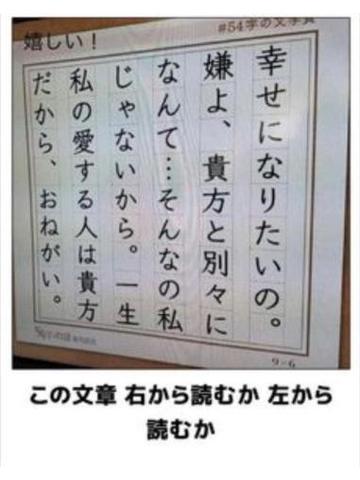 嬉しい！
#54字の文学賞
幸せになりたいの。
嫌よ、貴方と別々に
なんて…そんなの私
じゃないから。一生
私の愛する人は貴方
だから、おねがい。
9-6
この文章 右から読むか 左から
読むか